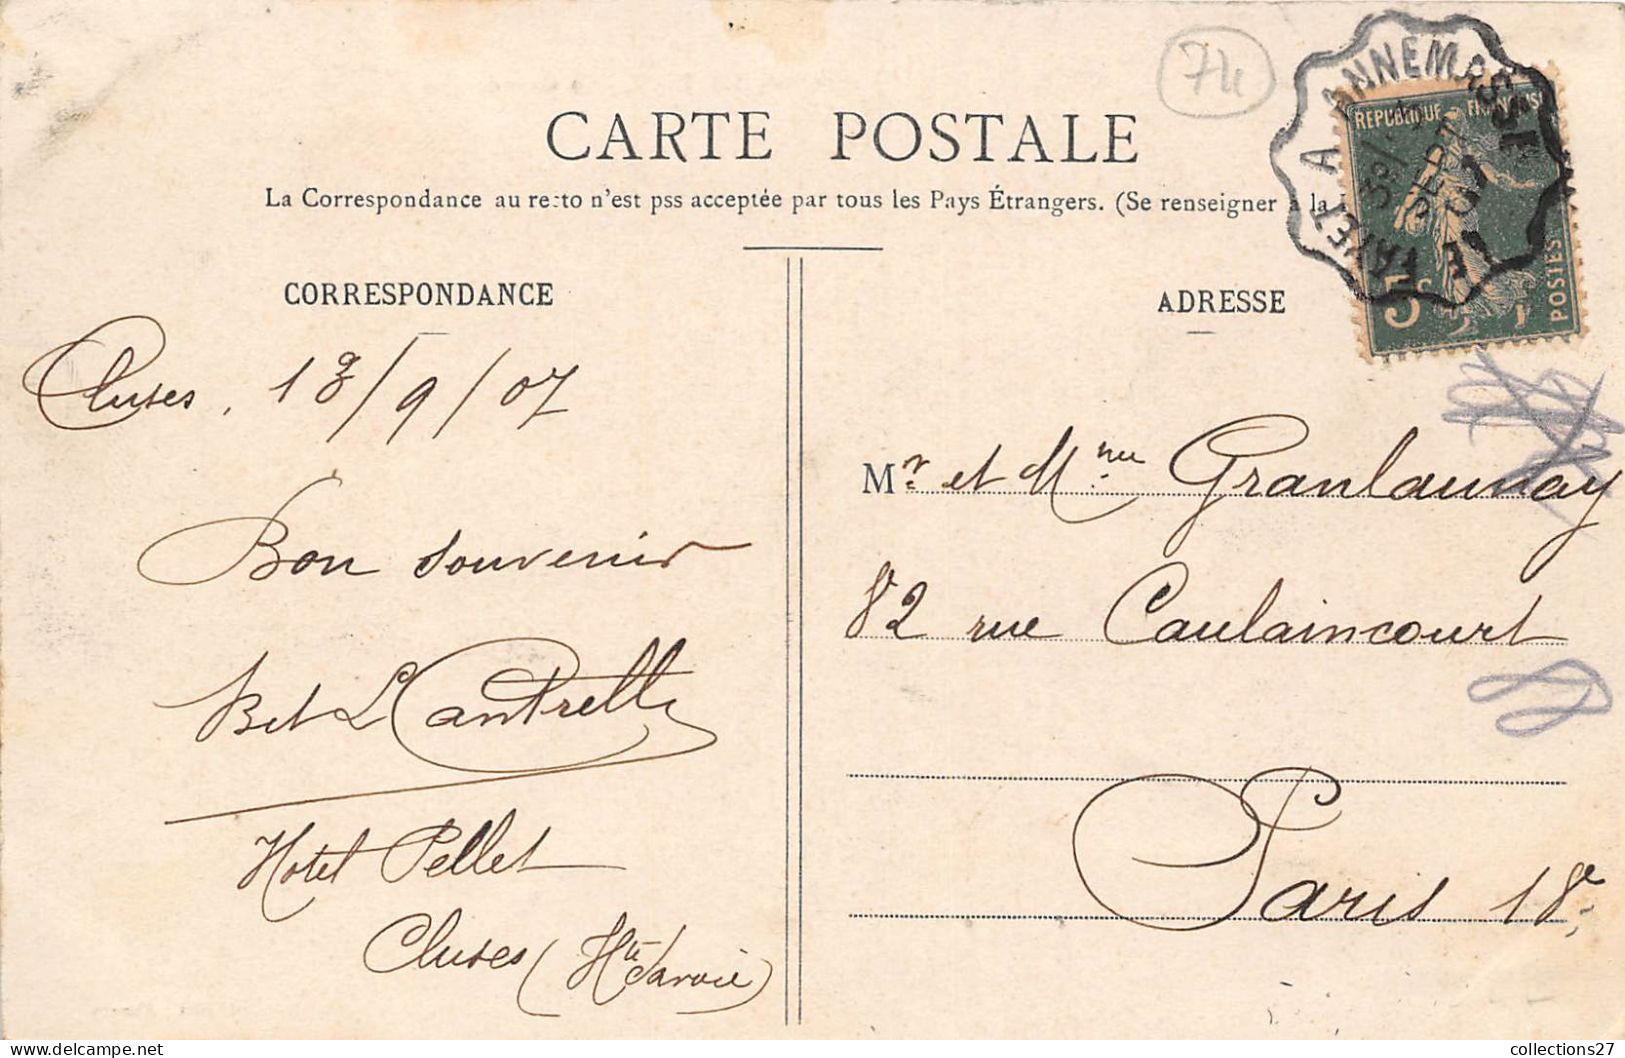 74
CARTE POSTALE
La Correspondance au recto n'est pss acceptée par tous les Pays Étrangers. (Se renseigner à la
CORRESPONDANCE
Cluses, 13/9/07
Bon souvenir
Hotel Pellet
Cluses (Hte Savoie)
ADRESSE
Mr et Mme Granlaunay
82 rue Caulaincourt
Paris 18e
LE FAYET A ANNEMASSE
SEPT
07
REPUBLIQUE FRANÇAISE
5c
POSTES
collections27